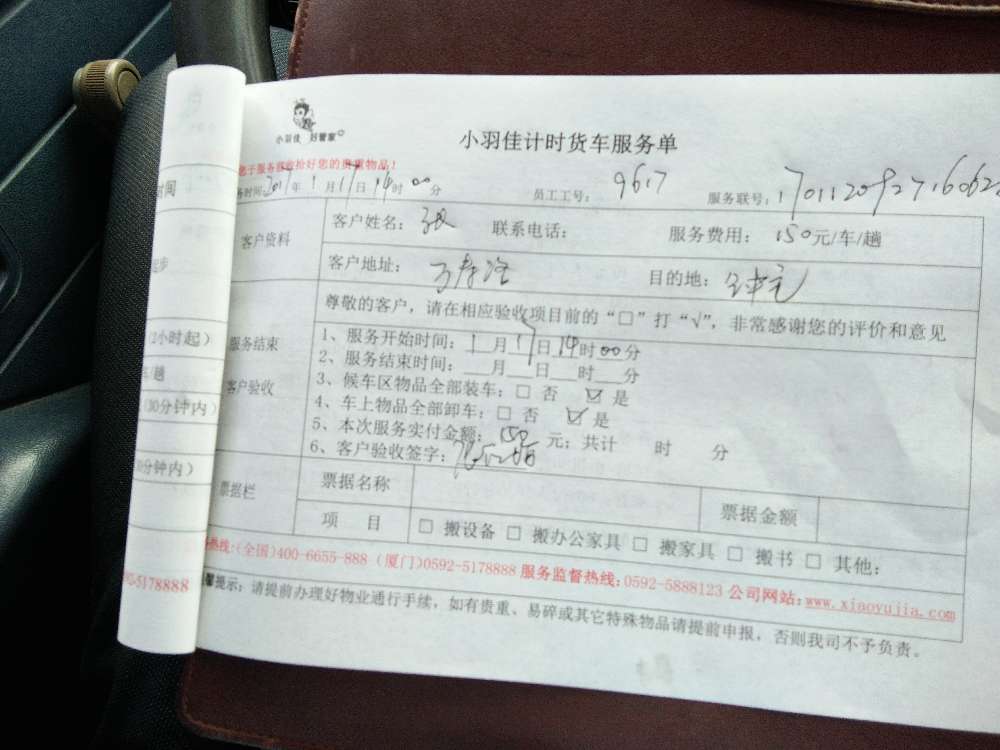 小羽佳 好管家
小羽佳计时货车服务单
您于服务前收拾好您的贵重物品!
务时间:2017年1月17日14时00分 员工工号: 9617 服务联号:
客户资料
客户姓名: 张 联系电话: 服务费用: 150元/车/趟
客户地址: 万寿路 目的地:
服务结束
客户验收
尊敬的客户，请在相应验收项目前的“□”打“√”，非常感谢您的评价和意见
1、服务开始时间: 1月17日14时00分
2、服务结束时间: ___月___日___时___分
3、候车区物品全部装车: □ 否 ☑ 是
4、车上物品全部卸车: □ 否 ☑ 是
5、本次服务实付金额: 150 元; 共计 时 分
6、客户验收签字:
票据栏
票据名称 票据金额
项 目 □ 搬设备 □ 搬办公家具 □ 搬家具 □ 搬书 □ 其他:
热线:(全国)400-6655-888 (厦门)0592-5178888 服务监督热线:0592-5888123 公司网站:www.xiaoyujia.com
馨提示: 请提前办理好物业通行手续，如有贵重、易碎或其它特殊物品请提前申报，否则我司不予负责。
时间
起步
2小时起)
趟
(30分钟内)
分钟内)
92-5178888